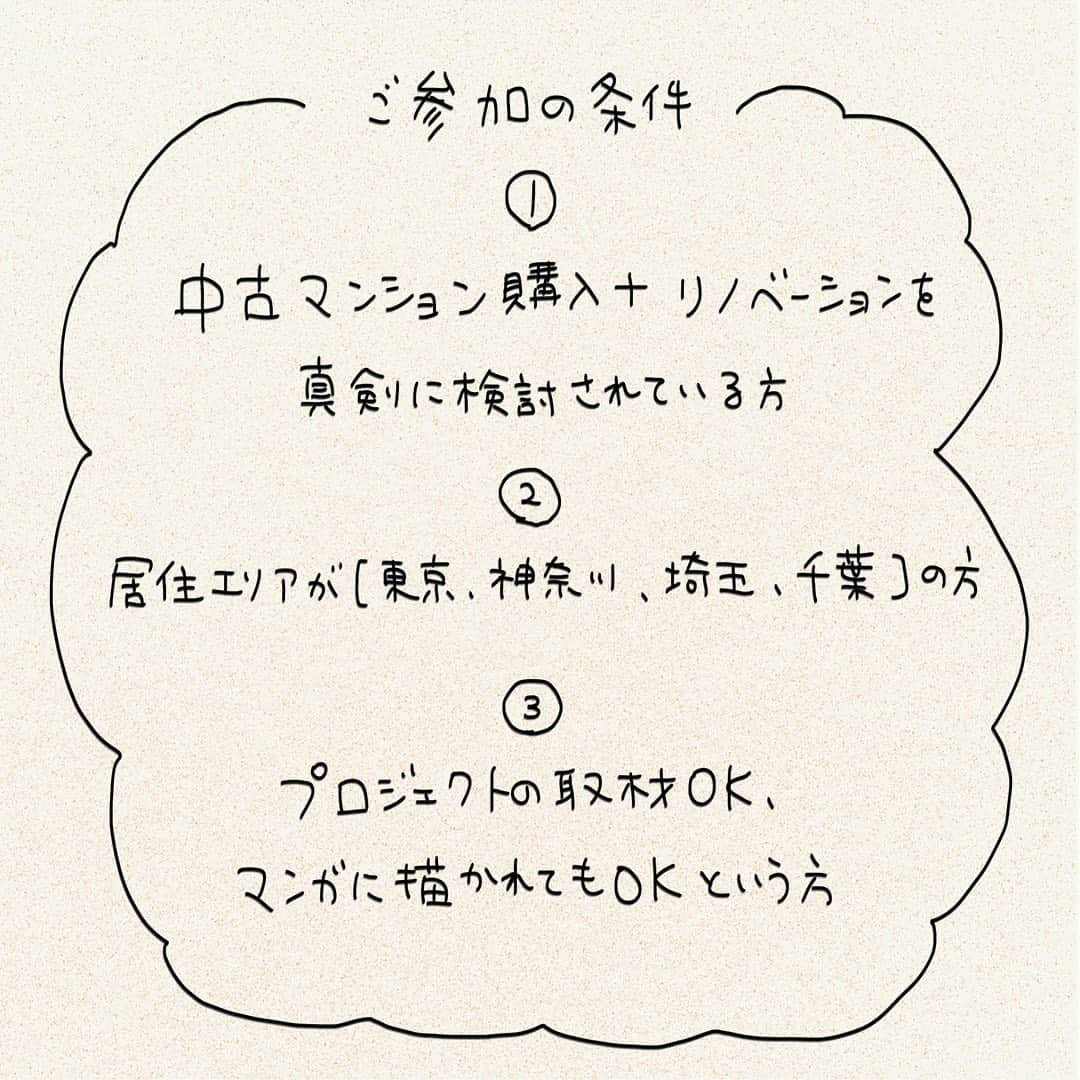 ご参加の条件
①
中古マンション購入+リノベーションを
真剣に検討されている方
②
居住エリアが[東京、神奈川、埼玉、千葉]の方
③
プロジェクトの取材OK、
マンガに描かれてもOKという方